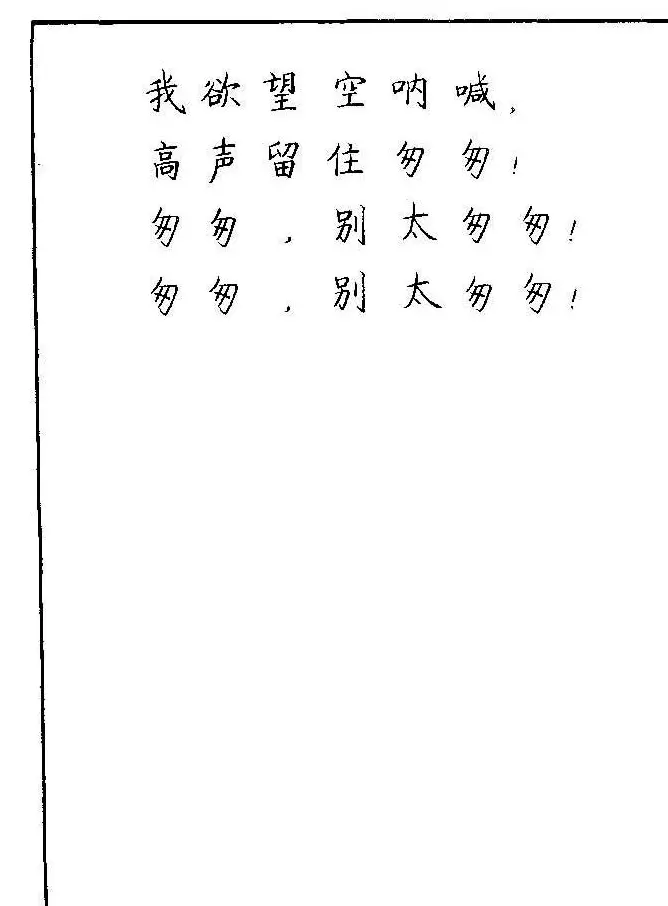 我欲望空呐喊,
高声留住匆匆!
匆匆,别太匆匆!
匆匆,别太匆匆!